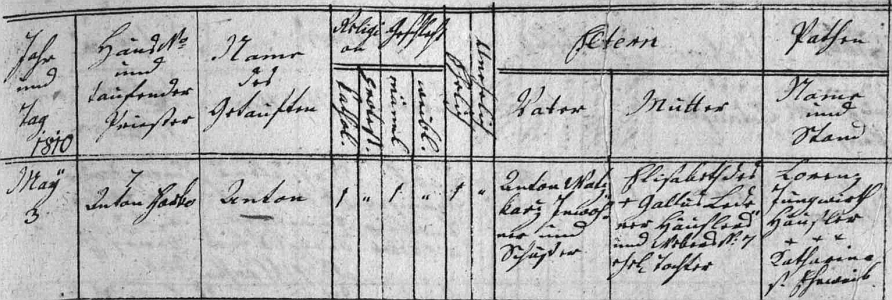 Jahr
und
Tag
1810
Haus No
und
taufender
Priester
Name
des
Getauften
Religi
on
Kathol.
protest.
Geschlecht
männl
weibl.
Ehelig
Unehelich
Eltern
Vater
Mutter
Pathen
Name
und
Stand
May
3
7
Anton
Anton
1 " 1 " 1 "
Anton Watz
karz Inwoh
ner und
Schuster
Elisabeth des
+ Gallus Lede
rer Häuslers
und Webers No: 7
ehel. Tochter
Lorenz
Jungwirth
Häusler
+ + +
Katharina
s. Eheweib.